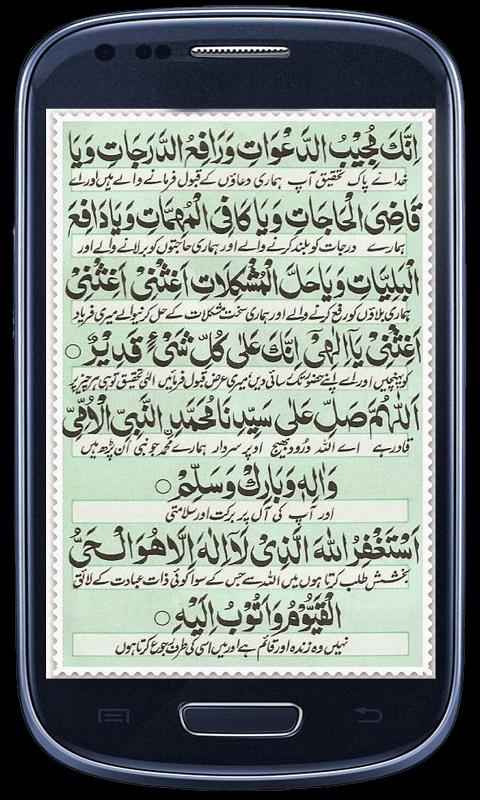 اِنَّكَ مُجِيْبُ الدَّعْوَاتِ وَرَافِعُ الدَّرَجَاتِ وَيَا
خدائے پاک تحقیق آپ ہماری دعاؤں کے قبول فرمانے والے ہیں اور اے
قَاضِيَ الْحَاجَاتِ وَيَا كَافِيَ الْمُهِمَّاتِ وَيَا دَافِعَ
ہمارے درجات کو بلند کرنے والے اور ہماری حاجتوں کو بر لانے والے اور
الْبَلِيَّاتِ وَيَا حَلَّ الْمُشْكِلَاتِ اَغِثْنِيْ اَغِثْنِيْ
ہماری بلاؤں کو رفع کرنے والے اور ہماری سخت مشکلات کے حل کرنیوالے میری فریاد
اَغِثْنِيْ يَآ اِلٰهِيْ اِنَّكَ عَلٰى كُلِّ شَيْءٍ قَدِيْرٌ ○
کو پہنچیں اور اے اپنے حضور تک رسائی دیں میری عرض قبول فرمائیں الٰہی تحقیق تو ہی ہر چیز پر
اَللّٰهُمَّ صَلِّ عَلٰى سَيِّدِنَا مُحَمَّدِنِ النَّبِيِّ الْاُمِّيِّ
قادر ہے اے اللہ درود بھیج اوپر سردار ہمارے محمد جو نبی ان پڑھ ہیں
وَاٰلِهٖ وَبَارِكْ وَسَلِّمْ ○
اور آپ کی آل پر برکت اور سلامتی
اَسْتَغْفِرُ اللهَ الَّذِيْ لَآ اِلٰهَ اِلَّا هُوَ الْحَيُّ
بخشش طلب کرتا ہوں میں اللہ سے جس کے سوا کوئی ذات عبادت کے لائق
الْقَيُّوْمُ وَاَتُوْبُ اِلَيْهِ ○
نہیں وہ زندہ اور قائم ہے اور میں اسی کی طرف رجوع کرتا ہوں